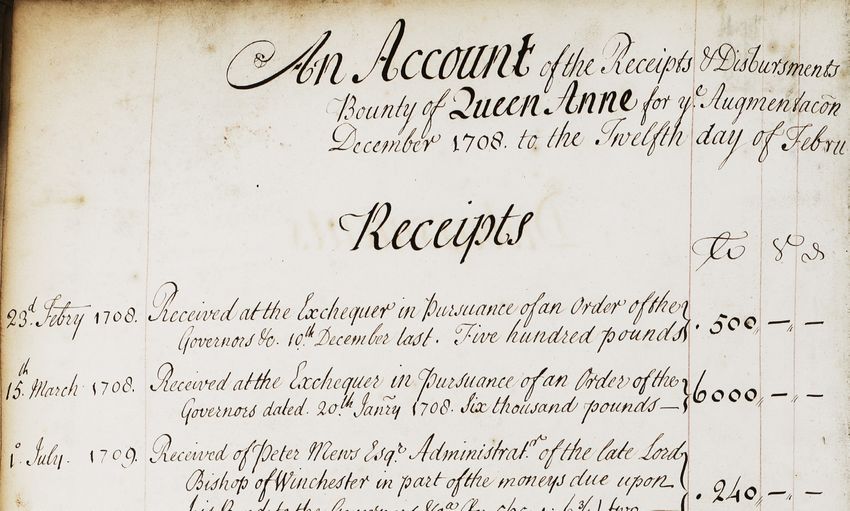 An Account of the Receipts & Disbursments
Bounty of Queen Anne for yᵉ Augmentacon
December 1708. to the Twelfth day of Febru
Receipts
23.ᵈ Febry 1708. Received at the Exchequer in pursuance of an Order of the
Governors &c. 10.ᵗʰ December last. Five hundred pounds . 500,, — ,, —
15.ᵗʰ March 1708. Received at the Exchequer in pursuance of an Order of the
Governors dated. 20.ᵗʰ Janry 1708. Six thousand pounds — 6000,, — ,, —
1.º July. 1709. Received of Peter Mews Esqʳ. Administratᵒʳ. of the late Lord
Bishop of Winchester in part of the moneys due upon
. 240,, — ,, —